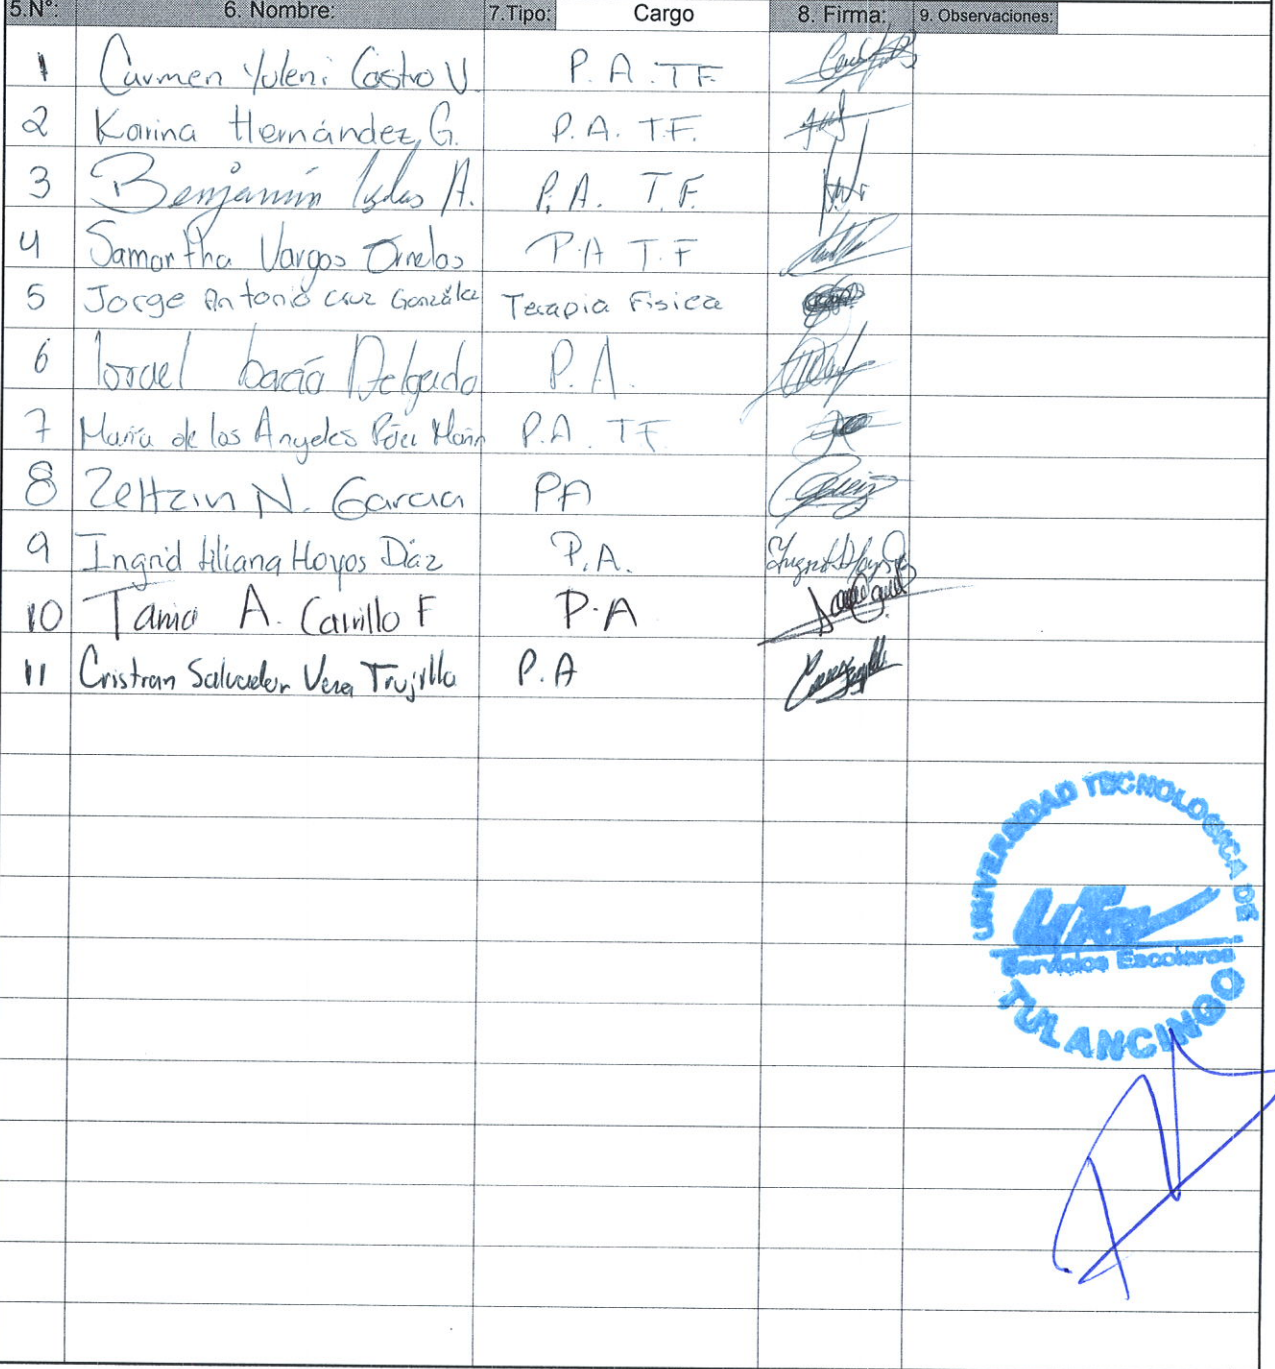 5.N°: 6. Nombre: 7.Tipo: Cargo 8. Firma: 9. Observaciones:
1 Carmen Yuleni Castro V. P.A.TF
2 Karina Hernández G. P.A. T.F.
3 Benjamín Islas A. P.A. T.F.
4 Samantha Vargas Ornelas P.A T.F
5 Jorge Antonio Cruz González Terapia Física
6 Israel García Delgado P.A.
7 María de los Angeles Pérez Marín P.A. TF
8 Zeltzin N. Garcia PA
9 Ingrid Iliana Hoyos Díaz P.A.
10 Tania A. Carrillo F P.A
11 Cristian Salvador Vera Trujillo P.A
UNIVERSIDAD TECNOLOGICA DE
UTec
Servicios Escolares
TULANCINGO